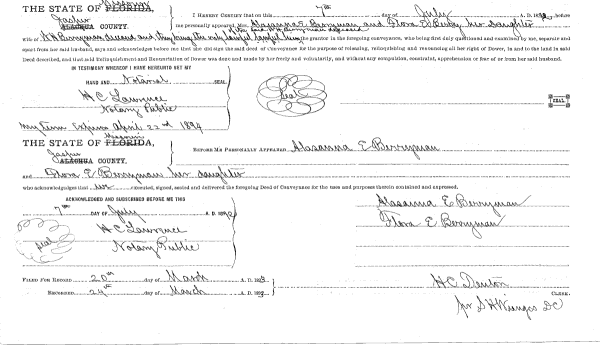 THE STATE OF FLORIDA, Missouri
Jasper
ALACHUA COUNTY.
I HEREBY CERTIFY that on this 7th day of July A. D. 189 before
me personally appeared, Mrs. Alasanna E Berryman and Flora E Berry her daughter
wife of Berryman deceased and they being the only lawful
the grantor in the foregoing conveyance, who being first duly questioned and examined by me, separate and
apart from her said husband, says and acknowledges before me that she did sign the said deed of Conveyance for the purpose of releasing, relinquishing and renouncing all her right of Dower, in and to the land in said
Deed described, and that said Relinquishment and Renunciation of Dower was done and made by her freely and voluntarily, and without any compulsion, constraint, apprehension or fear of or from her said husband.
IN TESTIMONY WHEREOF I HAVE HEREUNTO SET MY
HAND AND Notarial SEAL
H C Lawrence
Notary Public
My Term Expires April 22nd 1894
Seal
SEAL
THE STATE OF FLORIDA, Missouri
Jasper
ALACHUA COUNTY.
BEFORE ME PERSONALLY APPEARED Alasanna E Berryman
and Flora E Berryman her daughter
who acknowledges that executed, signed, sealed and delivered the foregoing Deed of Conveyance for the uses and purposes therein contained and expressed.
ACKNOWLEDGED AND SUBSCRIBED BEFORE ME THIS
7th DAY OF July A. D. 189
H C Lawrence
Notary Public
seal
Alasanna E Berryman
Flora E Berryman
FILED FOR RECORD 20th day of March A. D. 189
RECORDED 24th day of March A. D. 189
H C Denton
CLERK.
per S H Wienges DC